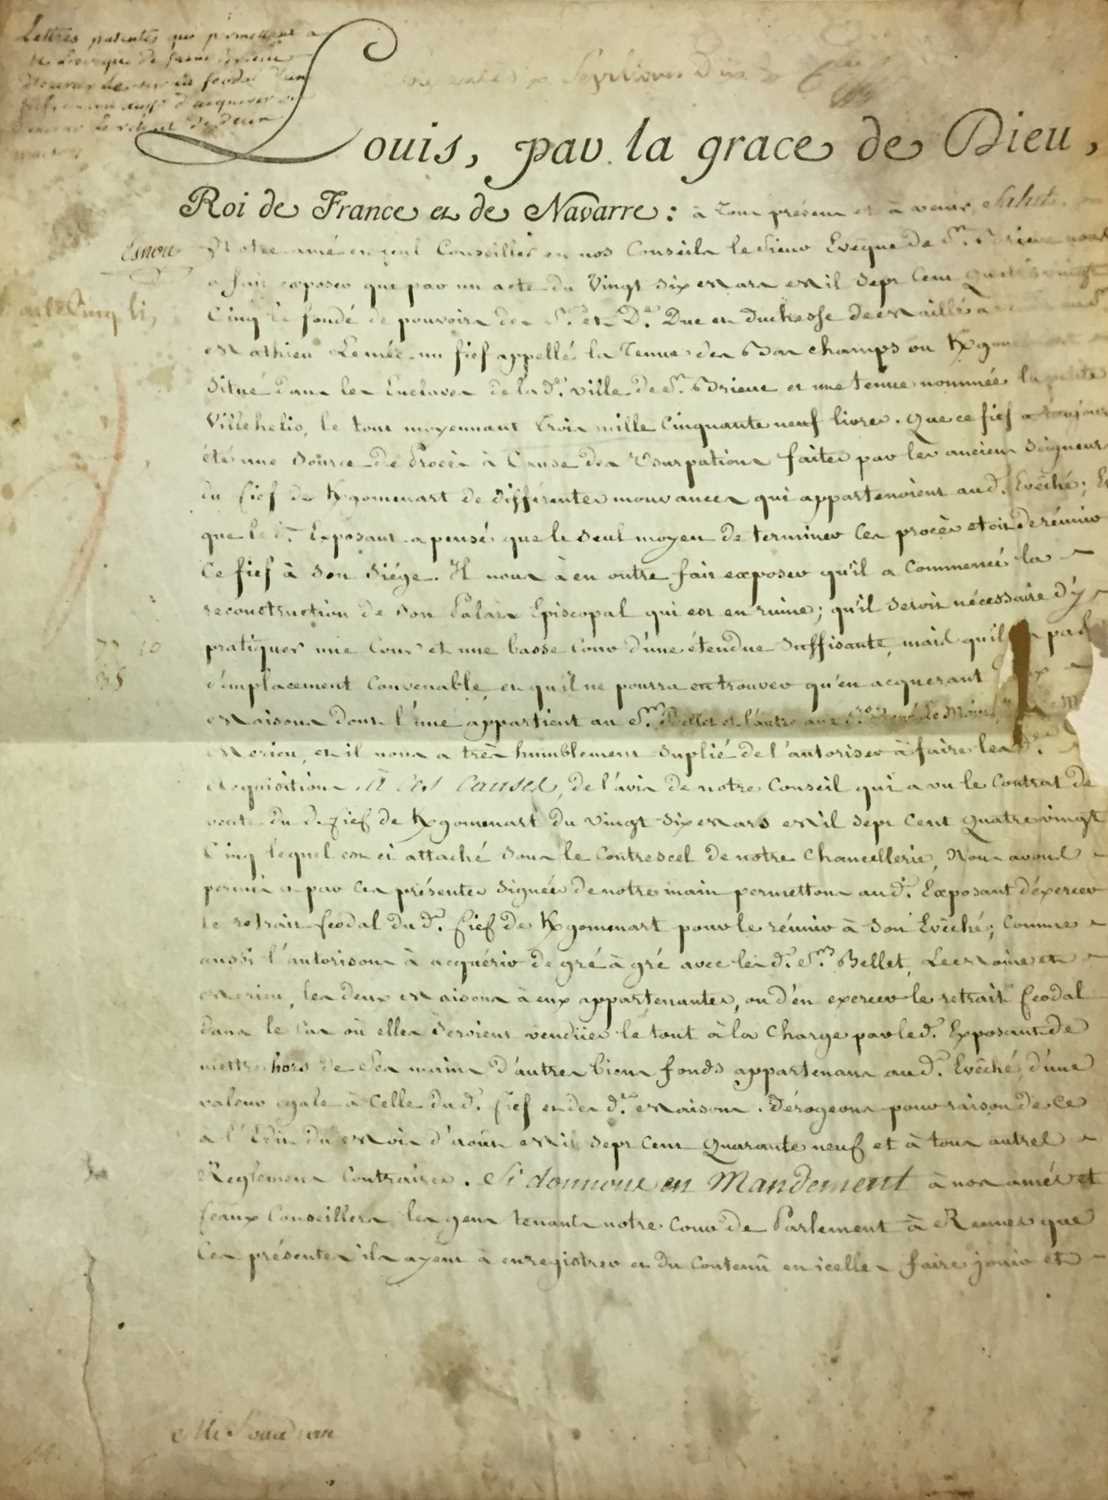 Lettres patentes qui permettent a
de saint Brieuc
d'acquerir
Louis, par la grace de Dieu,
Roi de France et de Navarre : à tous présens et à venir, Salut.
Notre amé en nos Conseils le Sieur Evêque de St. Brieuc nous
a fait exposer que par un acte du Vingt Six Mars Mil Sept Cent Quatre vingt
Cinq le fondé de pouvoirs des Sr. et De. Duc et Duchesse de Maillé a
Mathieu un fief appellé la Tenue des Bas champs ou
Situé dans les Enclaves de la de. ville de St. Brieuc et une tenue nommée la petite
Villehelio, le tout moyennant trois mille Cinquante neuf livres. Que ce fief a toujours
été une Source de Procès à Cause des Usurpations faites par les anciens Seigneurs
du fief de Kgomenart de différentes mouvances qui appartenoient aud. Evêché; Et
que le d. Exposant a pensé que le Seul moyen de terminer Ces procès etoit de réunir
Ce fief à Son Siége. Il nous à en outre fait exposer qu'il a Commencé la
reconstruction de Son Palais Episcopal qui est en ruine; qu'il Seroit nécessaire d'y
pratiquer une Cour et une basse Cour d'une étendue Suffisante, mais qu'il pas
d'emplacement Convenable, et qu'il ne pourra en trouver qu'en acquerant
Maisons dont l'une appartient au Sr. Bellet et l'autre aux Le Moine,
Morieu, et il nous a très humblement Suplié de l'autoriser à faire lesd.
Acquisitions A Ces Causes, de l'avis de notre Conseil qui a vu le Contrat de
vente du d. fief de Kgomenart du Vingt Six Mars Mil Sept Cent Quatre vingt
Cinq lequel est ci attaché Sous le Contrescel de notre Chancellerie, Nous avons
permis et par Ces présentes Signées de notre main permettons aud. Exposant d'éxercer
le retrait feodal dud. fief de Kgomenart pour le réunir à Son Evêché; Comme
aussi l'autorisons à acquérir de gré à gré avec lesd. Srs. Bellet, Le Moine et
Morieu, les deux Maisons à eux appartenantes, ou d'en exercer le retrait feodal
dans le Cas où elles Seroient vendues le tout à la Charge par led. Exposant de
mettre hors de Ses mains d'autres biens fonds appartenans aud. Evêché, d'une
valeur egale à Celle dud. fief et des des. Maisons. Dérogeons pour raison de Ce
a l'Edit du Mois d'aoûst Mil Sept Cent Quarante neuf et à tous autres
Reglemens Contraires. Si donnons en Mandement à nos amés et
feaux Conseillers les gens tenants notre Cour de Parlement à Rennes que
Ces présentes ils ayent à enregistrer et du Contenu en icelles faire jouir et